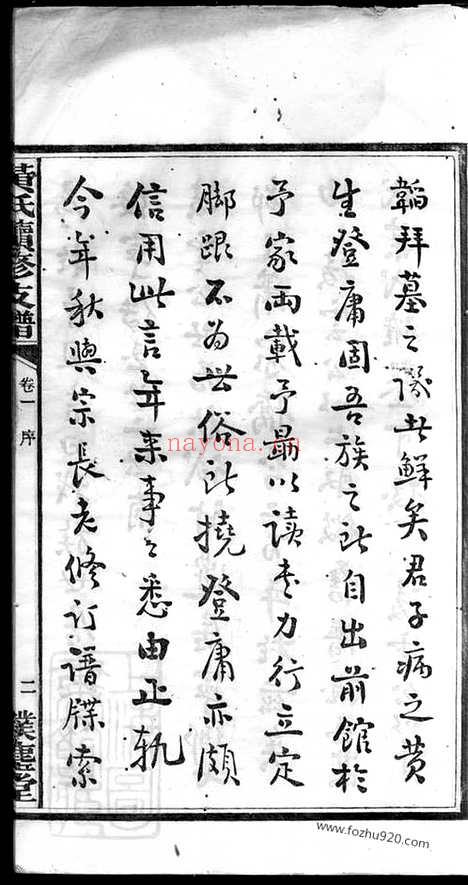 韜拜墓之儀者鮮矣君子病之黄
生登庸固吾族之所自出前館於
予家両載予最以读书力行立定
脚跟不为世俗所撓登庸亦頗
信用此言年来事之悉由正軌
今年秋與宗長老修订谱牒索
黄氏續修支譜
卷一 序
二
樸塵堂
nayona.cn
www.fozhu920.com